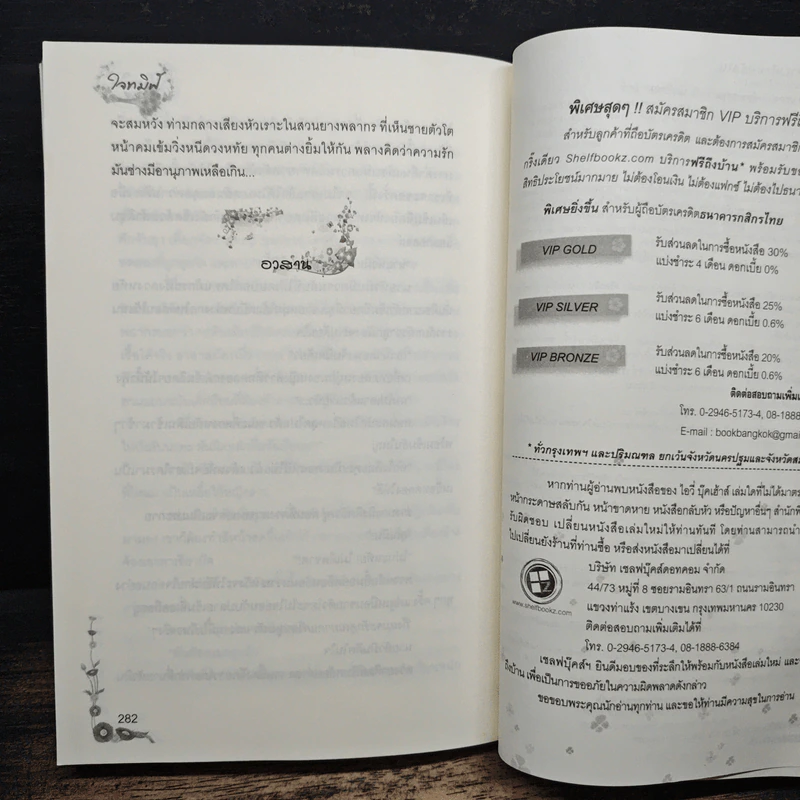 ใจทมิฬ
จะสมหวัง ท่ามกลางเสียงหัวเราะในสวนยางพลากร ที่เห็นชายตัวโต
หน้าคมเข้มวิ่งหนีดวงหทัย ทุกคนต่างยิ้มให้กัน พลางคิดว่าความรัก
มันช่างมีอานุภาพเหลือเกิน...
อวสาน
282
พิเศษสุดๆ !! สมัครสมาชิก VIP บริการฟรี
สำหรับลูกค้าที่ถือบัตรเครดิต และต้องการสมัครสมาชิก
กริ๊งเดียว Shelfbookz.com บริการฟรีถึงบ้าน* พร้อมรับ
สิทธิประโยชน์มากมาย ไม่ต้องโอนเงิน ไม่ต้องแฟกซ์ ไม่ต้องไป
พิเศษยิ่งขึ้น สำหรับผู้ถือบัตรเครดิตธนาคารกสิกรไทย
VIP GOLD
รับส่วนลดในการซื้อหนังสือ 30%
แบ่งชำระ 4 เดือน ดอกเบี้ย 0%
VIP SILVER
รับส่วนลดในการซื้อหนังสือ 25%
แบ่งชำระ 6 เดือน ดอกเบี้ย 0.6%
VIP BRONZE
รับส่วนลดในการซื้อหนังสือ 20%
แบ่งชำระ 6 เดือน ดอกเบี้ย 0.6%
ติดต่อสอบถามเพิ่มเ
โทร. 0-2946-5173-4, 08-1888
E-mail : bookbangkok@gmai
* ทั่วกรุงเทพฯ และปริมณฑล ยกเว้นจังหวัดนครปฐมและจังหวัด
หากท่านผู้อ่านพบหนังสือของ ไอวี่ บุ๊คเฮ้าส์ เล่มใดที่ไม่ได้มาตร
หน้ากระดาษสลับกัน หน้าขาดหาย หนังสือกลับหัว หรือปัญหาอื่นๆ สำนักพิ
รับผิดชอบ เปลี่ยนหนังสือเล่มใหม่ให้ท่านทันที โดยท่านสามารถนำ
ไปเปลี่ยนยังร้านที่ท่านซื้อ หรือส่งหนังสือมาเปลี่ยนได้ที่
บริษัท เชลฟบุ๊คส์ดอทคอม จำกัด
44/73 หมู่ที่ 8 ซอยรามอินทรา 63/1 ถนนรามอินทรา
แขวงท่าแร้ง เขตบางเขน กรุงเทพมหานคร 10230
www.shelfbookz.com
ติดต่อสอบถามเพิ่มเติมได้ที่
โทร. 0-2946-5173-4, 08-1888-6384
เชลฟบุ๊คส์ฯ ยินดีมอบของที่ระลึกให้พร้อมกับหนังสือเล่มใหม่ และ
ถึงบ้าน เพื่อเป็นการขออภัยในความผิดพลาดดังกล่าว
ขอขอบพระคุณนักอ่านทุกท่าน และขอให้ท่านมีความสุขในการอ่าน